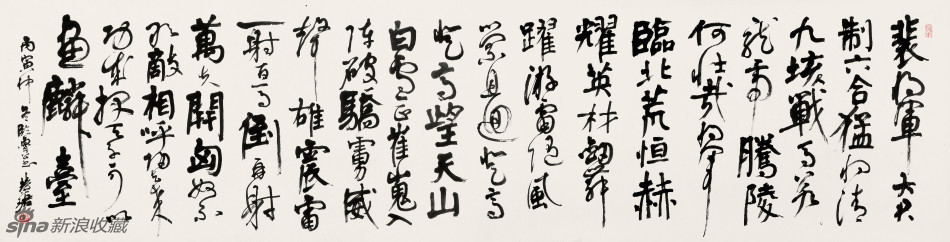 裴将軍大君
制六合猛将清
九垓戰馬若
龍虎騰陵
何壯哉将軍
臨北荒恒赫
耀英材劔舞
躍游電随風
縈且迴登高
登高望天山
白雲正崔嵬入
陣破驕虜威
聲雄震雷
一射百馬倒再射
萬夫開匈奴不
敢敵相呼歸去来
功成報天子可以
畫麟臺
丙寅仲冬臨魯公
sina新浪收藏